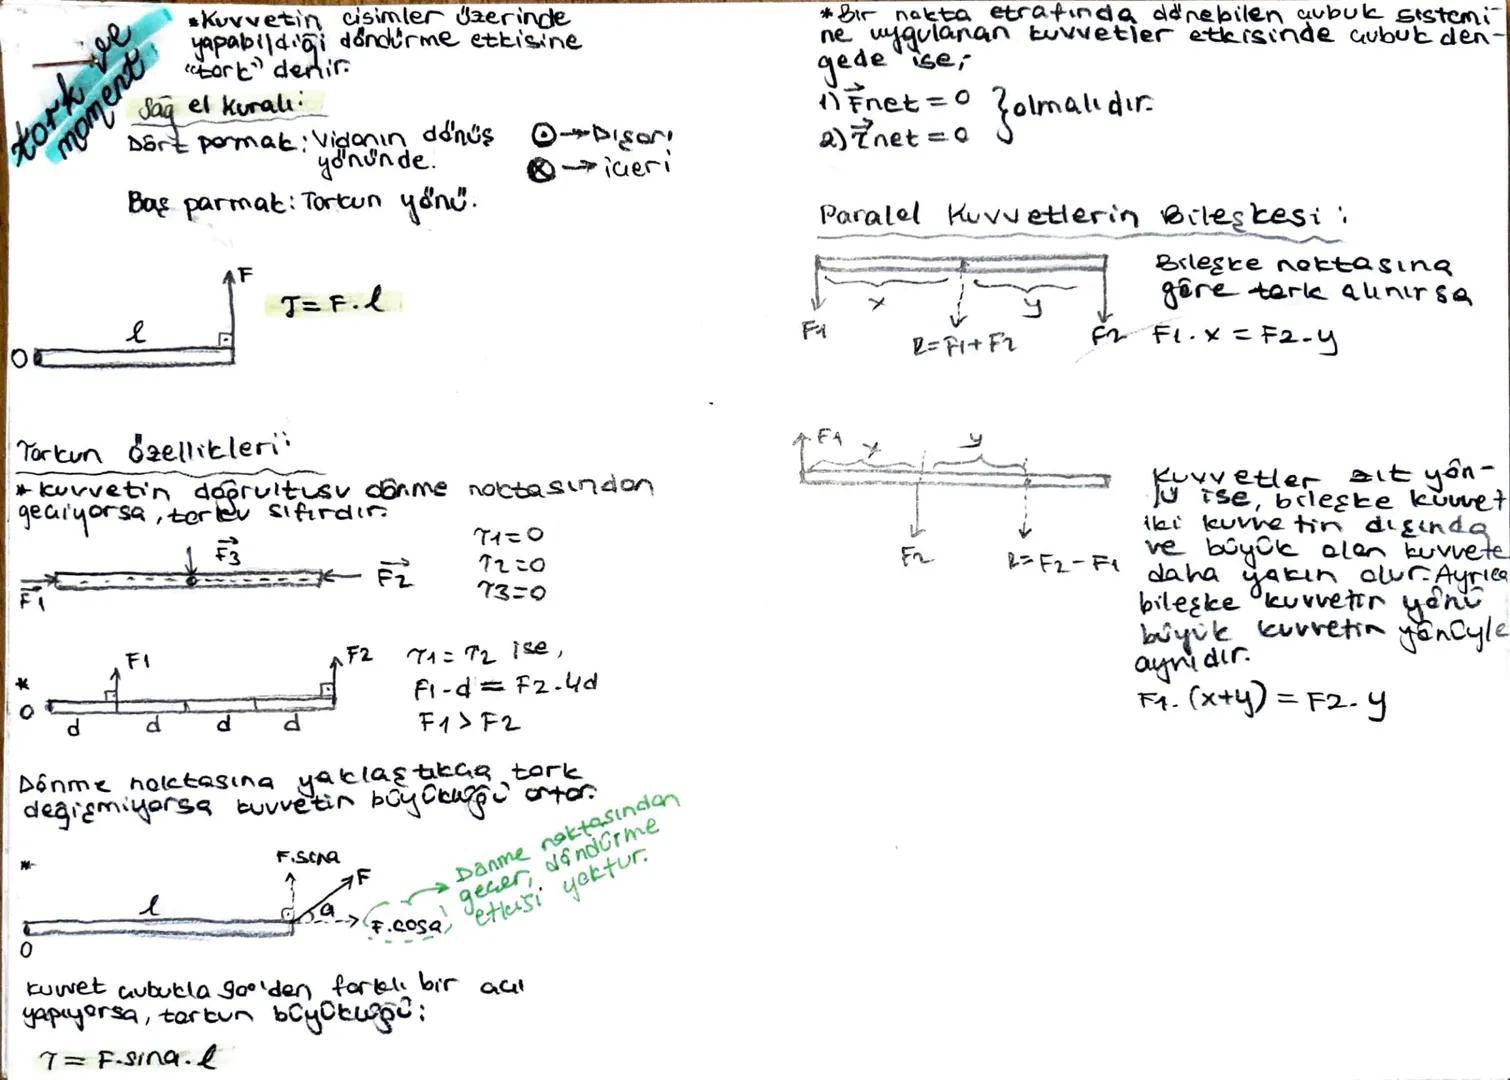 tork ve
moment
*Kuvvetin cisimler üzerinde
yapabildiği döndürme etkisine
"tork" denir.
Sağ el kuralı:
Dört parmak: Vidanın dönüş
yönünde.
⊙→Dışarı
⊗→içeri
Baş parmak: Torkun yönü.
F
l
O
τ = F.l
Torkun özellikleri:
* kuvvetin doğrultusu dönme noktasından
geçiyorsa, torku sıfırdır.
F1
F3
F2
τ1=0
τ2=0
τ3=0
*
O
F1
F2
d d d d
τ1=τ2 ise,
F1-d = F2.4d
F1>F2
Dönme noktasına yaklaştıkça tork
değişmiyorsa kuvvetin büyüklüğü artar.
*
F.sina
F
l
a
F.cosa
O
Dönme noktasından
geçer, döndürme
etkisi yoktur.
kuvvet çubukla 90°'den farklı bir açı
yapıyorsa, torkun büyüklüğü:
τ = F.sina.l
*Bir nokta etrafında dönebilen çubuk sistemi-
ne uygulanan kuvvetler etkisinde çubuk den-
gede ise;
1) Fnet = 0
2) τnet = 0
} olmalıdır.
Paralel Kuvvetlerin Bileşkesi:
x
y
F1
R=F1+F2
F2
Bileşke noktasına
göre tork alınırsa
F1.x = F2-y
F1
x
y
F2
R=F2-F1
Kuvvetler zıt yön-
lü ise, bileşke kuvvet
iki kuvvetin dışında
ve büyük olan kuvvete
daha yakın olur. Ayrıca
bileşke kuvvetin yönü
büyük kuvvetin yönüyle
aynıdır.
F1.(x+y) = F2.y